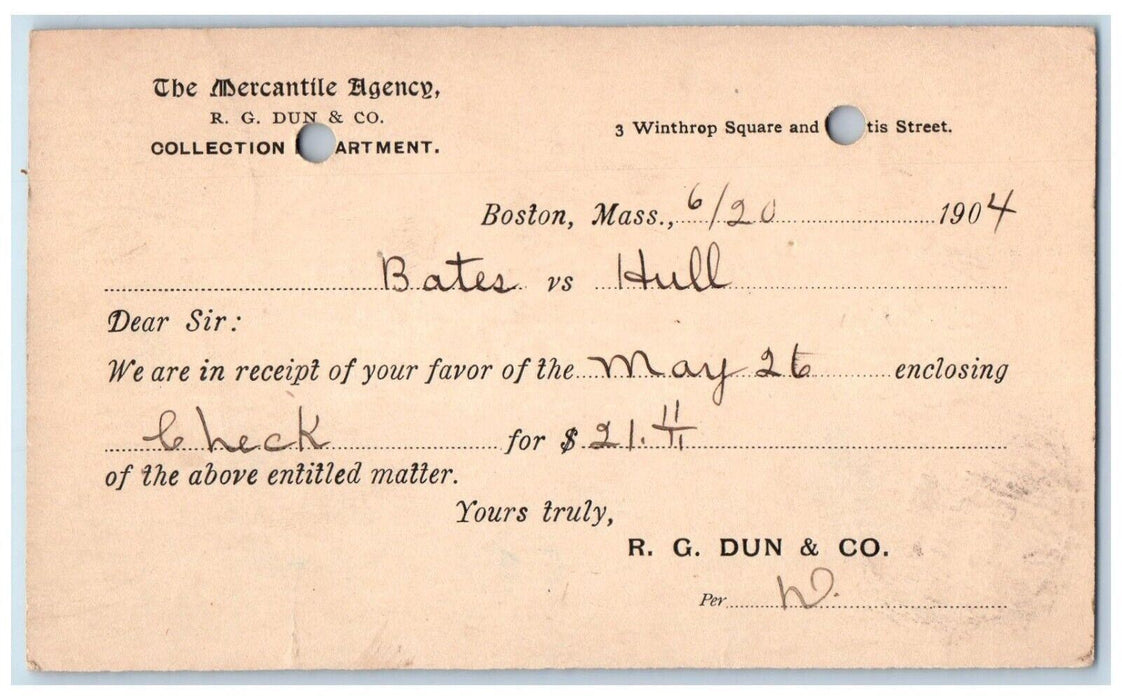 The Mercantile Agency,
R. G. DUN & CO.
COLLECTION ARTMENT.
3 Winthrop Square and tis Street.
Boston, Mass., 6/20 1904
Bates vs Hull
Dear Sir:
We are in receipt of your favor of the May 26 enclosing
Check for $ 21. 11
of the above entitled matter.
Yours truly,
R. G. DUN & CO.
Per W.